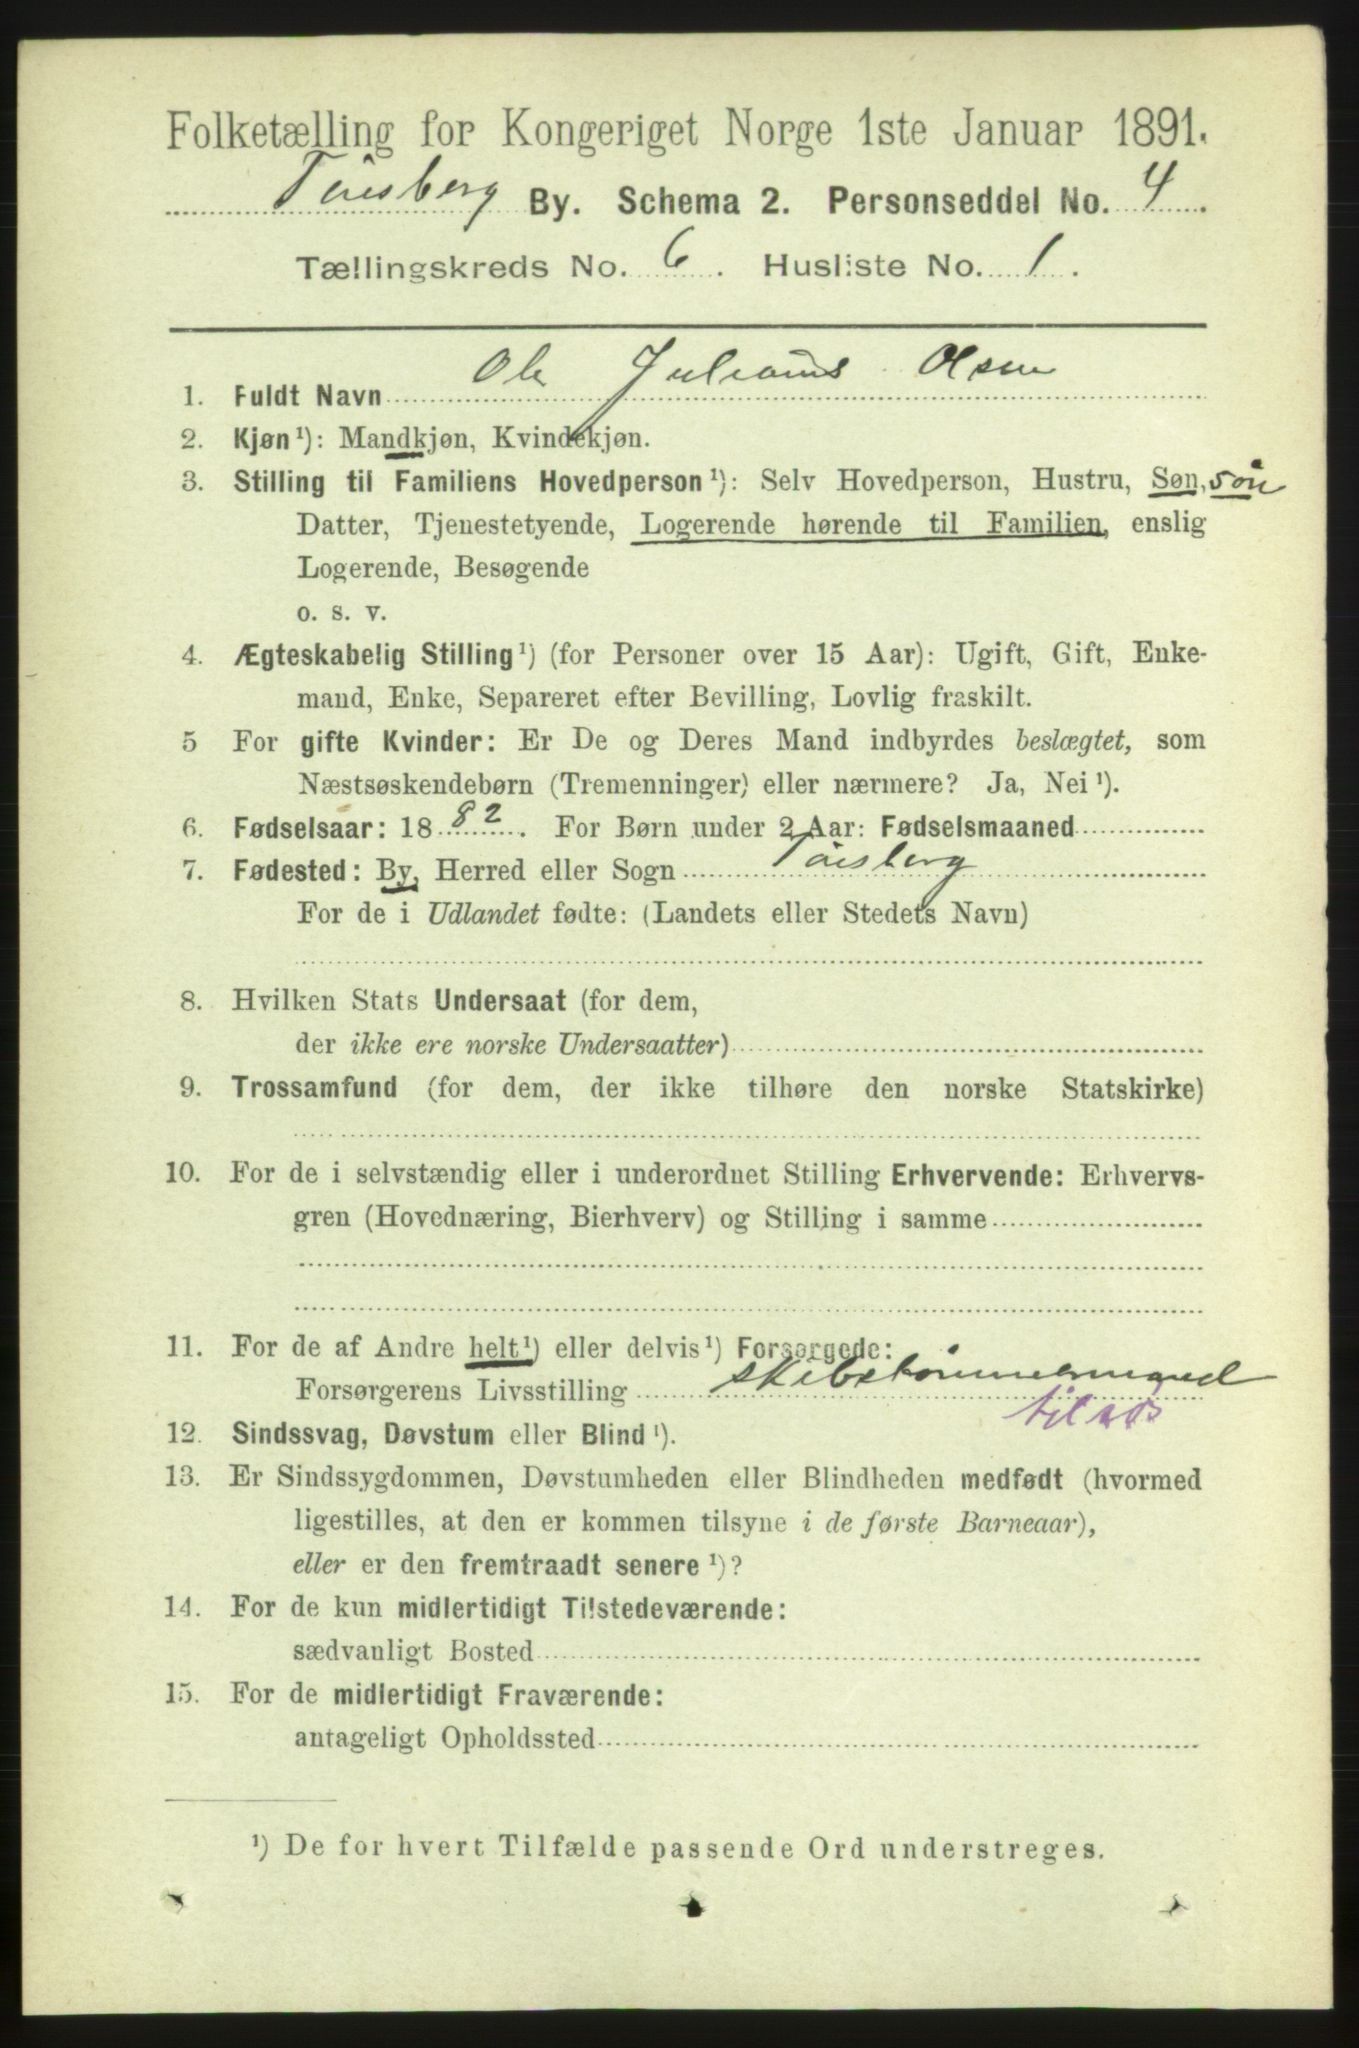 Folketælling for Kongeriget Norge 1ste Januar 1891.
Tønsberg By. Schema 2. Personseddel No. 4.
Tællingskreds No. 6. Husliste No. 1.
1. Fuldt Navn Ole Julianus Olsen
2. Kjøn¹): Mandkjøn, Kvindekjøn.
3. Stilling til Familiens Hovedperson¹): Selv Hovedperson, Hustru, Søn, søn
Datter, Tjenestetyende, Logerende hørende til Familien, enslig
Logerende, Besøgende
o. s. v.
4. Ægteskabelig Stilling¹) (for Personer over 15 Aar): Ugift, Gift, Enke-
mand, Enke, Separeret efter Bevilling, Lovlig fraskilt.
5 For gifte Kvinder: Er De og Deres Mand indbyrdes beslægtet, som
Næstsøskendebørn (Tremenninger) eller nærmere? Ja, Nei¹).
6. Fødselsaar: 1882. For Børn under 2 Aar: Fødselsmaaned
7. Fødested: By, Herred eller Sogn Tønsberg
For de i Udlandet fødte: (Landets eller Stedets Navn)
8. Hvilken Stats Undersaat (for dem,
der ikke ere norske Undersaatter)
9. Trossamfund (for dem, der ikke tilhøre den norske Statskirke)
10. For de i selvstændig eller i underordnet Stilling Erhvervende: Erhvervs-
gren (Hovednæring, Bierhverv) og Stilling i samme
11. For de af Andre helt¹) eller delvis¹) Forsørgede:
Forsørgerens Livsstilling skibstømmermand
tilsøs
12. Sindssvag, Døvstum eller Blind¹).
13. Er Sindssygdommen, Døvstumheden eller Blindheden medfødt (hvormed
ligestilles, at den er kommen tilsyne i de første Barneaar),
eller er den fremtraadt senere¹)?
14. For de kun midlertidigt Tilstedeværende:
sædvanligt Bosted
15. For de midlertidigt Fraværende:
antageligt Opholdssted
¹) De for hvert Tilfælde passende Ord understreges.